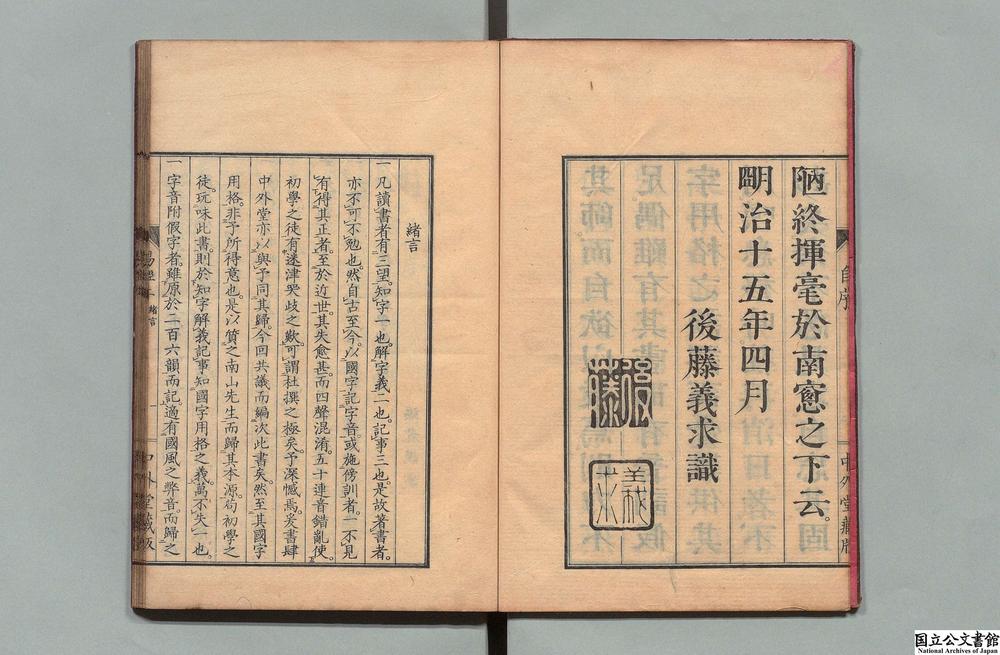 陋終揮毫於南窓之下云。
明治十五年四月
後藤義求識
後藤
義求
自序
中外堂藏版
緒言
一凡讀書者有三望。知字一也。解字義二也。記事三也。是故著書者。
亦不可不勉也。然自古至今。以國字記字音。或施傍訓者。一不見
有得其正者。至於近世。其失愈甚。而四聲混淆。五十連音錯亂。使
初學之徒有迷津哭歧之歎。可謂杜撰之極矣。予深憾焉。爰書肆
中外堂亦以與予同其歸。今回共議而編次此書矣。然至其國字
用格。非予所得意也。是以質之南山先生而歸其本源。苟初學之
徒。玩味此書。則於知字解義記事知國字用格之義。萬不失一也。
一字音附假字者。雖原於二百六韻而記。適有國風之弊音而歸之
緒言
中外堂藏版
国立公文書館
National Archives of Japan